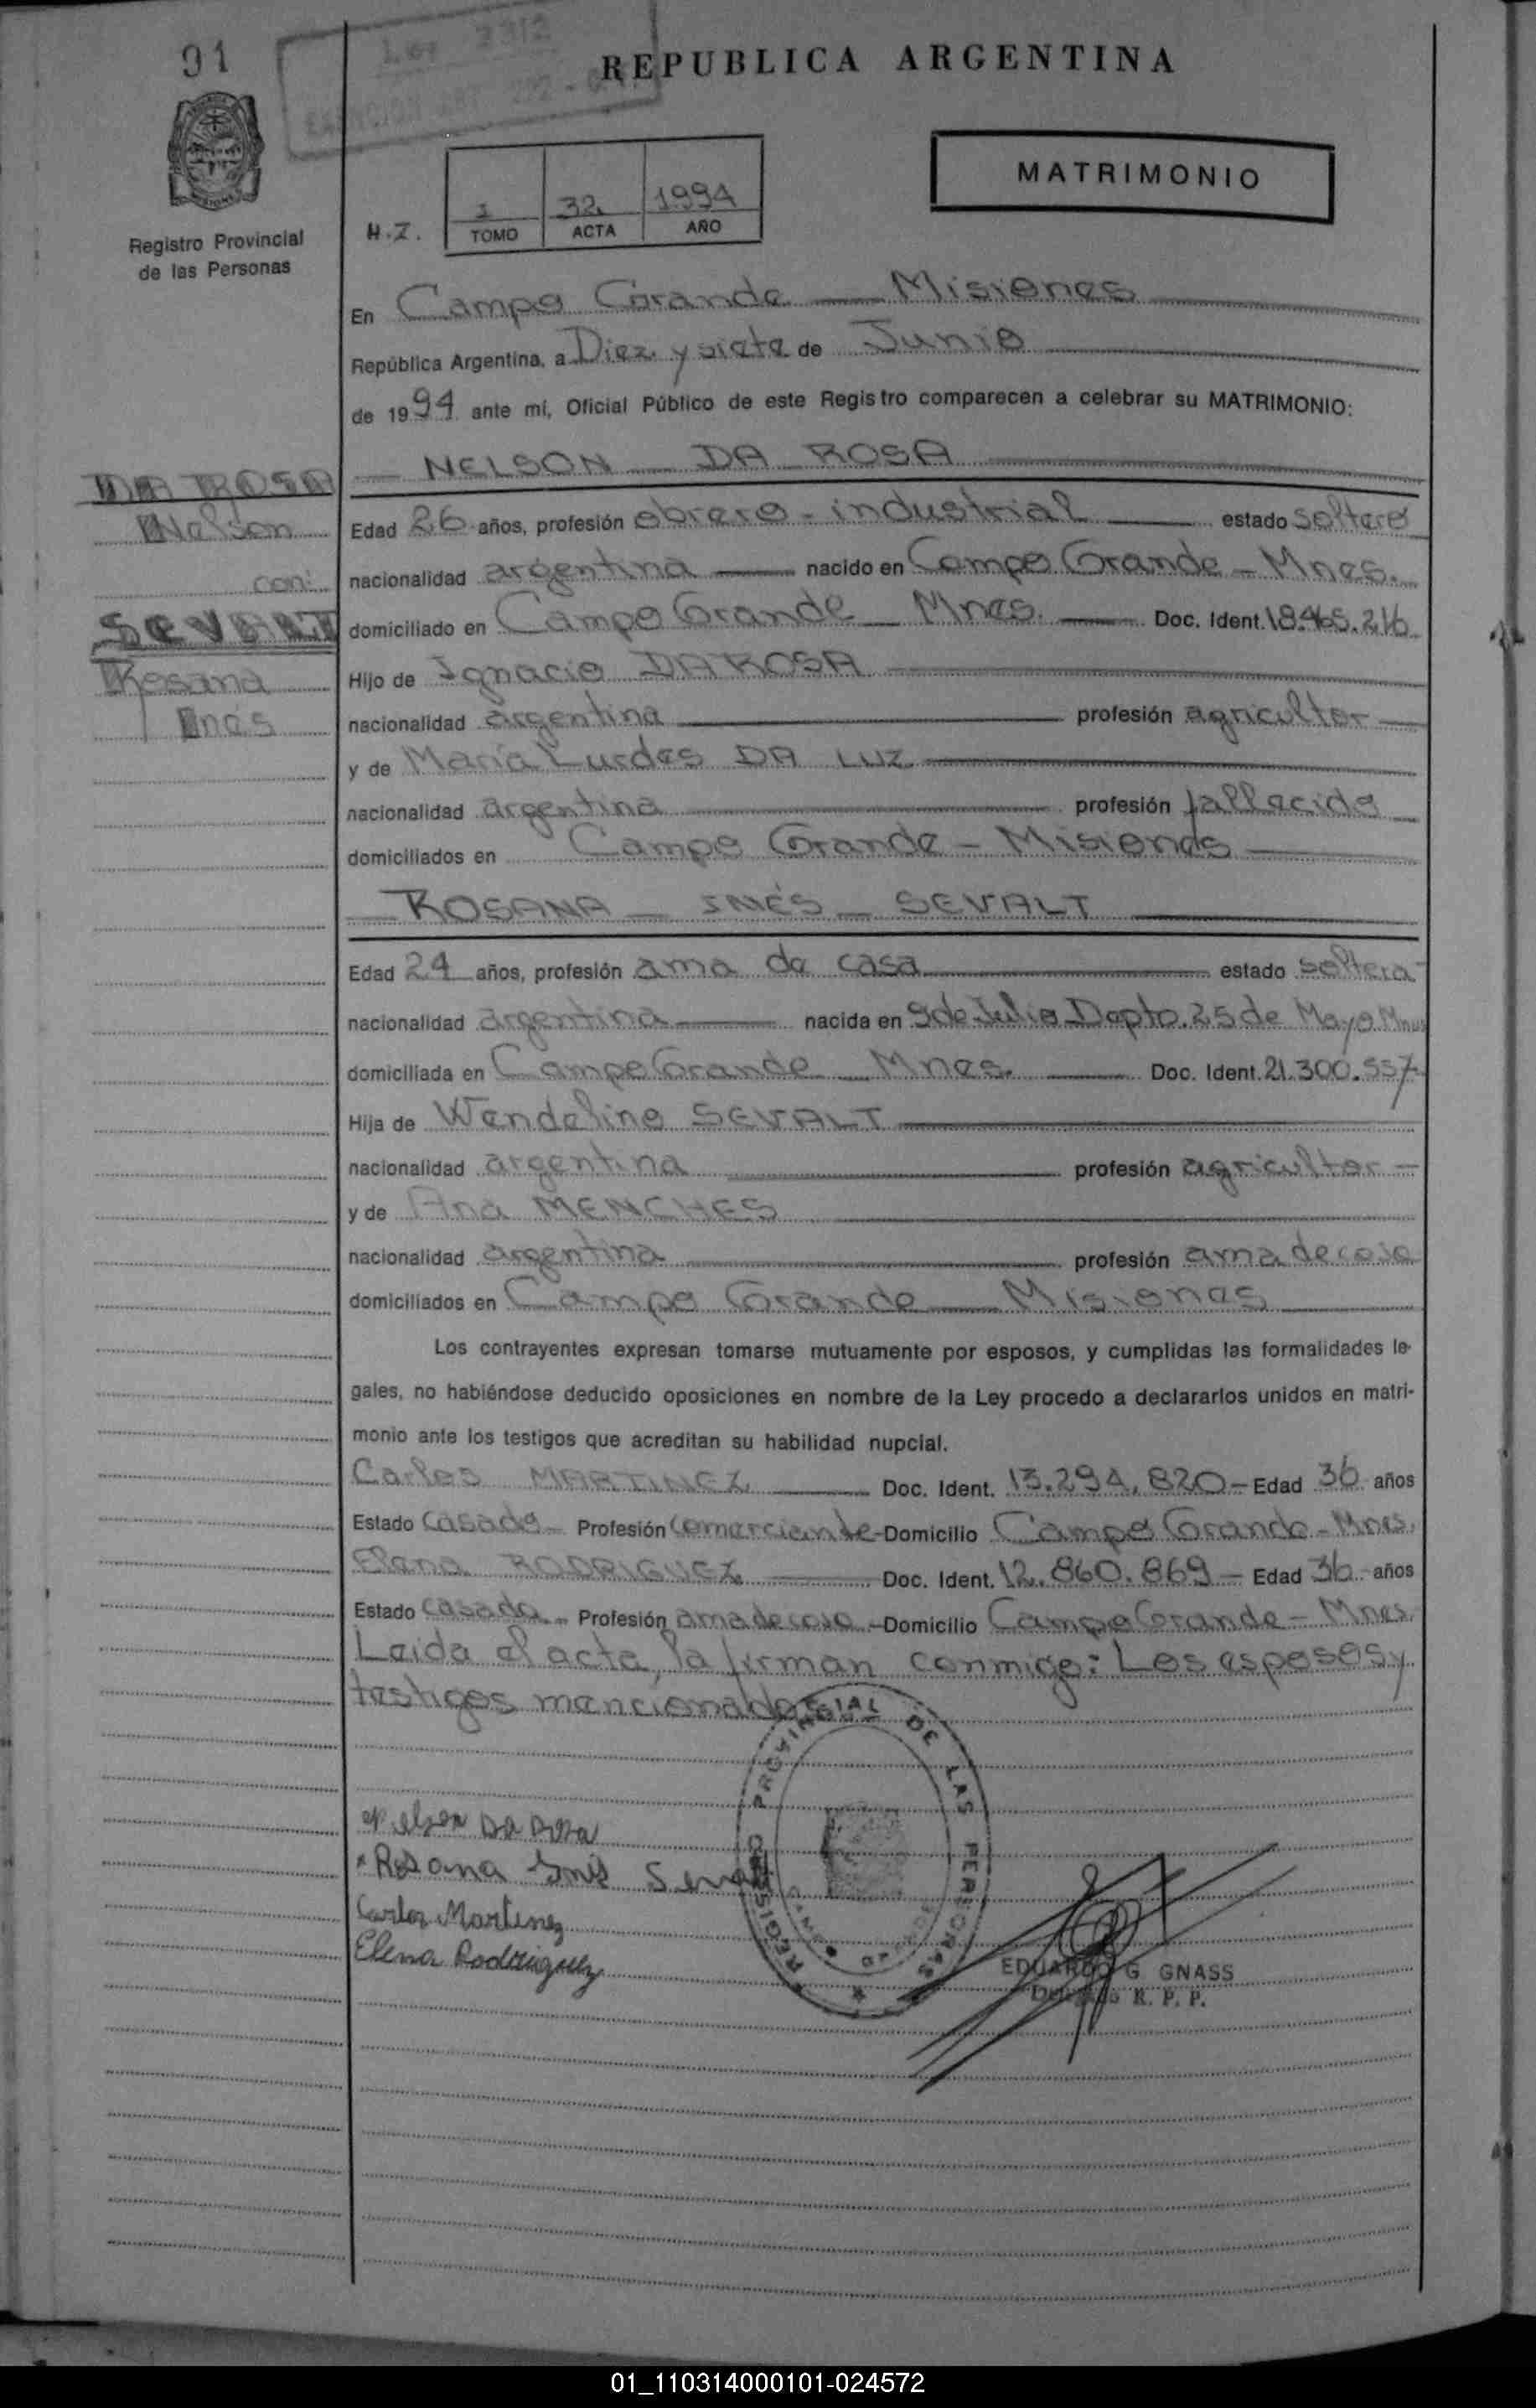 91
Ley 2312
REPUBLICA ARGENTINA
MATRIMONIO
1 32 1994
H.Z. TOMO ACTA AÑO
Registro Provincial
de las Personas
En Campo Grande — Misiones
República Argentina, a Diez y siete de Junio
de 1994 ante mí, Oficial Público de este Registro comparecen a celebrar su MATRIMONIO:
DA ROSA
Nelson
con:
SEVALT
Rosana
Inés
— NELSON — DA ROSA —
Edad 26 años, profesión obrero - industrial — estado soltero
nacionalidad argentina — nacido en Campo Grande - Mnes.
domiciliado en Campo Grande — Mnes. — Doc. Ident. 18.465.216
Hijo de Ignacio DA ROSA —
nacionalidad argentina — profesión agricultor —
y de María Lurdes DA LUZ —
nacionalidad argentina — profesión fallecida
domiciliados en Campo Grande - Misiones —
— ROSANA — INÉS — SEVALT —
Edad 24 años, profesión ama de casa — estado soltera
nacionalidad argentina — nacida en 9 de Julio Depto. 25 de Mayo Mnes
domiciliada en Campo Grande — Mnes. — Doc. Ident. 21.300.557
Hija de Wendelino SEVALT —
nacionalidad argentina — profesión agricultor —
y de Ana MENCHES —
nacionalidad argentina — profesión ama de casa
domiciliados en Campo Grande — Misiones —
Los contrayentes expresan tomarse mutuamente por esposos, y cumplidas las formalidades le-
gales, no habiéndose deducido oposiciones en nombre de la Ley procedo a declararlos unidos en matri-
monio ante los testigos que acreditan su habilidad nupcial.
Carlos MARTINEZ — Doc. Ident. 13.294.820 - Edad 36 años
Estado casado - Profesión comerciante - Domicilio Campo Grande - Mnes.
Elena RODRIGUEZ — Doc. Ident. 12.860.869 - Edad 36 años
Estado casada - Profesión ama de casa - Domicilio Campo Grande - Mnes.
Leida el acta, la firman conmigo: Los esposos y
testigos mencionados
REGISTRO PROVINCIAL DE LAS PERSONAS
Nelson DA ROSA
Rosana Inés Sevalt
Carlos Martinez
Elena Rodriguez
EDUARDO G GNASS
R. P. P.
01_110314000101-024572